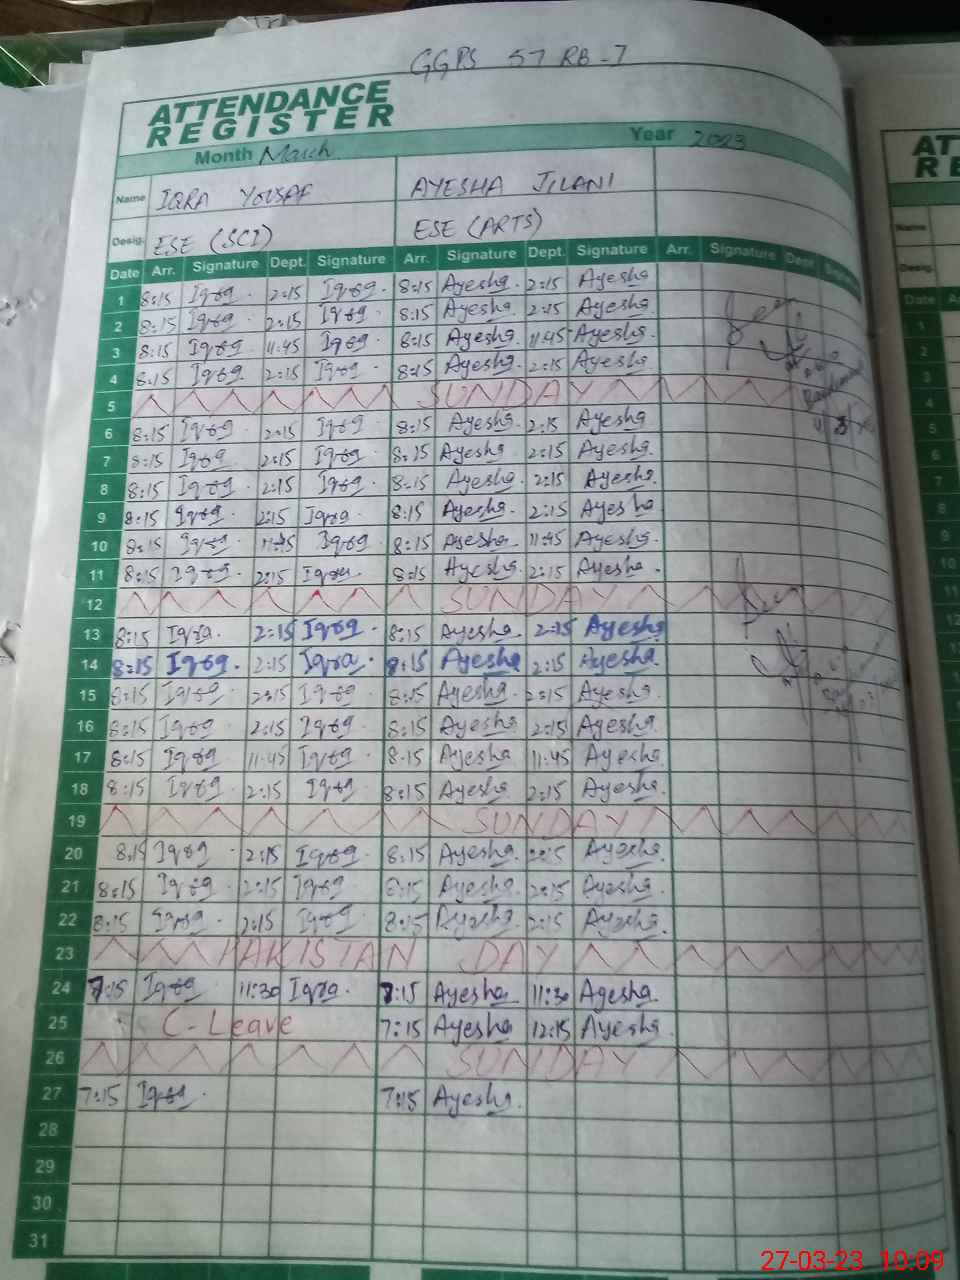 GGPS 57 RB-I
ATTENDANCE
REGISTER
Month March. Year 2023
Name IQRA YOUSAF AYESHA JILANI
Desig. ESE (SCI) ESE (ARTS)
Date Arr. Signature Dept. Signature Arr. Signature Dept. Signature Arr. Signature Dept. Signature
1 8:15 Iqra. 2:15 Iqra. 8:15 Ayesha. 2:15 Ayesha
2 8:15 Iqra 2:15 Iqra. 8:15 Ayesha. 2:15 Ayesha.
3 8:15 Iqra 11:45 Iqra 8:15 Ayesha. 11:45 Ayesha.
4 8:15 Iqra. 2:15 Iqra. 8:15 Ayesha. 2:15 Ayesha.
5 SUNDAY
6 8:15 Iqra 2:15 Iqra. 8:15 Ayesha. 2:15 Ayesha.
7 8:15 Iqra. 2:15 Iqra. 8:15 Ayesha. 2:15 Ayesha.
8 8:15 Iqra. 2:15 Iqra. 8:15 Ayesha. 2:15 Ayesha.
9 8:15 Iqra. 2:15 Iqra. 8:15 Ayesha. 2:15 Ayesha
10 8:15 Iqra. 11:45 Iqra 8:15 Ayesha 11:45 Ayesha.
11 8:15 Iqra. 2:15 Iqra 8:15 Ayesha. 2:15 Ayesha.
12 SUNDAY
13 8:15 Iqra. 2:15 Iqra. 8:15 Ayesha. 2:15 Ayesha
14 8:15 Iqra. 2:15 Iqra. 8:15 Ayesha 2:15 Ayesha.
15 8:15 Iqra. 2:15 Iqra. 8:15 Ayesha. 2:15 Ayesha.
16 8:15 Iqra 2:15 Iqra. 8:15 Ayesha 2:15 Ayesha.
17 8:15 Iqra. 11:45 Iqra. 8:15 Ayesha 11:45 Ayesha.
18 8:15 Iqra. 2:15 Iqra 8:15 Ayesha. 2:15 Ayesha.
19 SUNDAY
20 8:15 Iqra 2:15 Iqra. 8:15 Ayesha. 2:15 Ayesha.
21 8:15 Iqra. 2:15 Iqra. 8:15 Ayesha. 2:15 Ayesha.
22 8:15 Iqra. 2:15 Iqra. 8:15 Ayesha. 2:15 Ayesha.
23 PAKISTAN DAY
24 7:15 Iqra. 11:30 Iqra. 7:15 Ayesha 11:30 Ayesha.
25 C-Leave 7:15 Ayesha 12:15 Ayesha.
26 SUNDAY
27 7:15 Iqra. 7:15 Ayesha.
28
29
30
31
AT
RE
Name
Desig.
Date A
1
2
3
4
5
6
7
8
9
10
11
12
27-03-23 10:09